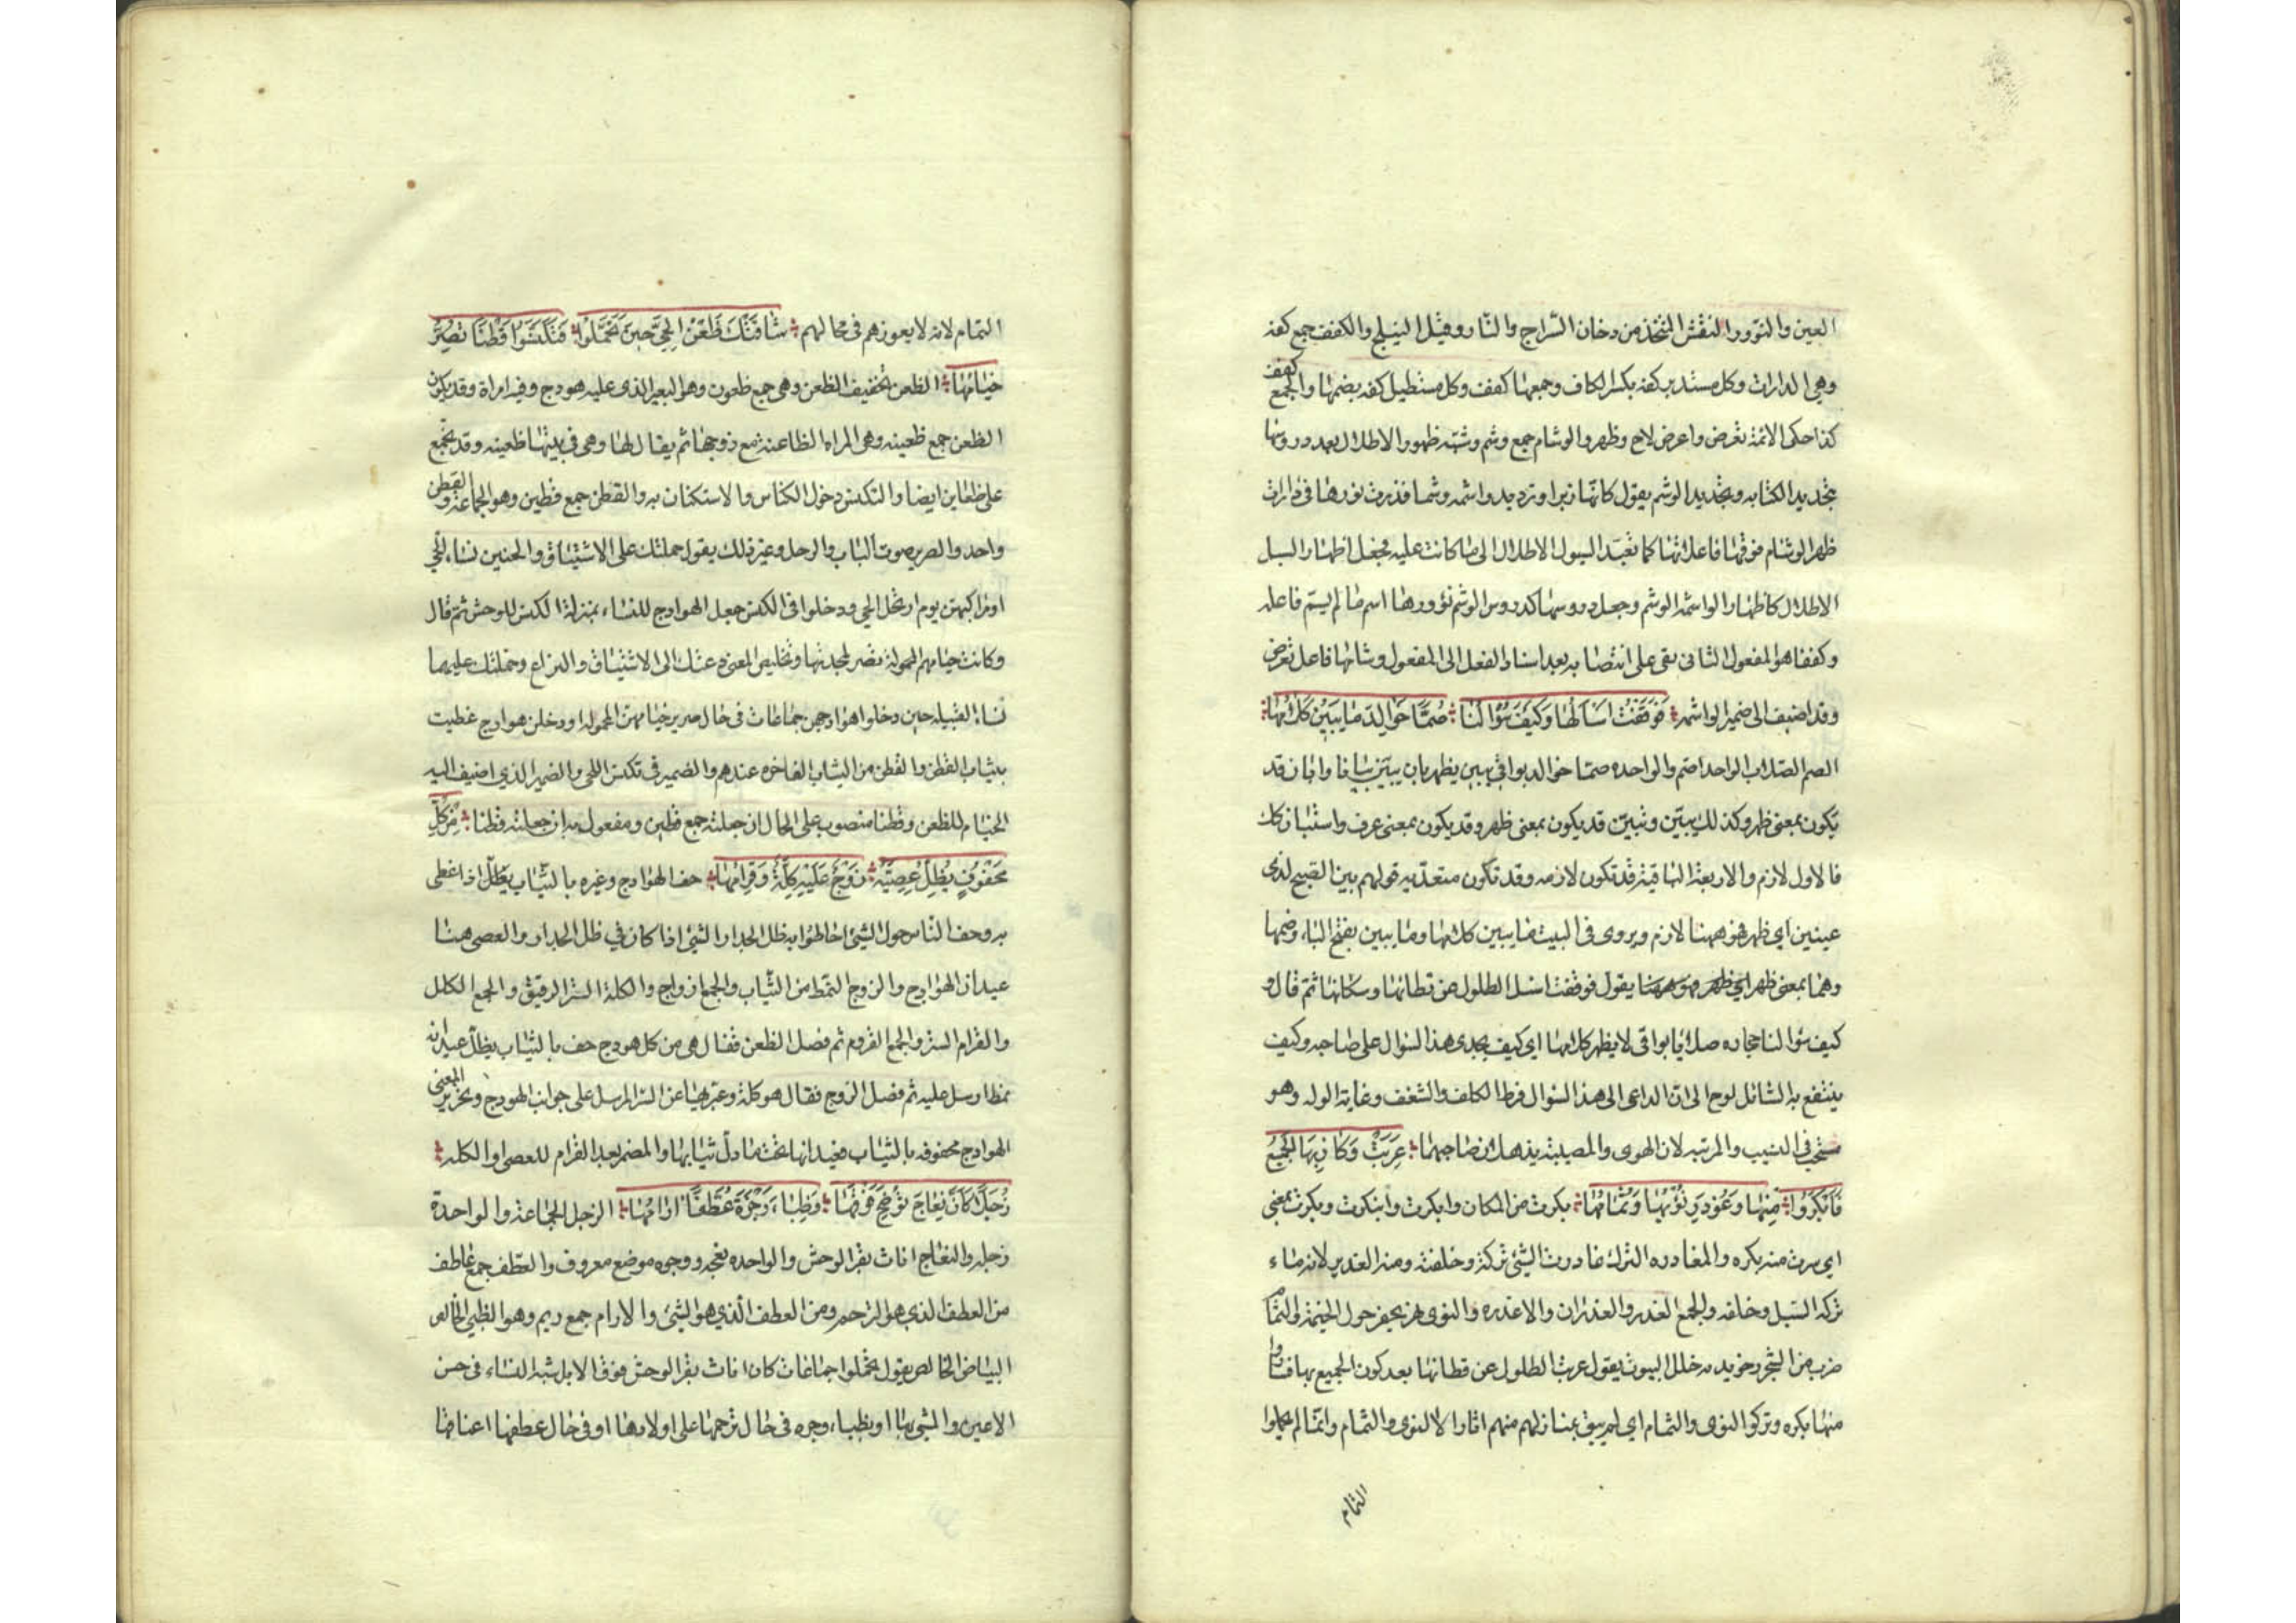 العين والنوور النقش المتخذ من دخان السراج والنار وقيل النيلج والكفف جمع كفه
وهي الدارات وكل مستدير كفه بكسر الكاف وجمعها كفف وكل مستطيل كفه بضمها والجمع كفف
كذا حكى الائمة تعرض واعرض لاح وظهر والوشام جمع وشم وشبه ظهور الاطلال بعد دروسها
بتجديد الكتابه وتجديد الوشم يقول كانها زبر او ترديد واشمه وشما قد ذرت نورها في دارات
ظهر الوشام فوقها فاعلاتها كما تعيد السيول الاطلال الى ما كانت عليه فجعل اظهار السيل
الاطلال كاظهار الواشمه الوشم وجعل دروسها كدروس الوشم نؤورها اسم ما لم يسم فاعله
وكففا هو المفعول الثاني بقى على انتصابه بعد اسناد الفعل الى المفعول وشامها فاعل تعرض
وقد اضيف الى ضمير الواشمه فَوَقَفْتُ اسْأَلُهَا وَكَيْفَ سُؤَالُنَا صُمًّا خَوَالِدَ مَا يَبِيْنُ كَلَامُهَا
الصم الصلاب الواحد اصم والواحده صماء خوالد بواقي يبين يظهر بان يبين بيانا وابان قد
يكون بمعنى ظهر وكذلك يبين وتبين قد يكون بمعنى ظهر وقد يكون بمعنى عرف واستبان كك
فالاول لازم والاربعة الباقية قد تكون لازمه وقد تكون متعديه قولهم بين الصبح لذى
عينين اي ظهر فهو ههنا لازم ويروى في البيت ما يبين كلامها وما يبين بفتح الياء وضمها
وهما بمعنى ظهر اي ظهر فهو ههنا يقول فوقفت اسئل الطلول عن قطانها وسكانها ثم قال و
كيف سؤالنا حجاره صلابا بواقى لا يظهر كلامها اي كيف يجدى هذا السؤال على صاحبه وكيف
ينتفع به السائل لوح الى ان الداعى الى هذا السؤال فرط الكلف والشغف وغاية الوله وهو
مستحب في النسيب والمرثيه لان الهوى والمصيبة يذهلان صاحبهما عَرِيَتْ وَكَانَ بِهَا الْجَمِيْعُ
فَابْكَرُوا مِنْهَا وَغُوْدِرَ نُؤْيُهَا وَثُمَامُهَا بكرت من المكان وابكرت وابتكرت وبكرت بمعنى
اي سرت منه بكره والمغادره الترك غادرت الشئ تركته وخلفته ومنه الغدير لانه ماء
تركه السيل وخلفه والجمع الغدر والغدران والاغدره والنوى نهر يحفر حول الخيمة والثمام
ضرب من الشجر رخو يسد به خلل البيوت يقول عريت الطلول عن قطانها بعد كون الجميع بها فساروا
منها بكره وتركوا النوى والثمام اي لم يبق بمنازلهم منهم اثار الا النوى والثمام وانما لم يحملوا
الثمام
الثمام لانه لا يعوزهم في محالهم شَاقَتْكَ ظُعْنُ الْحَيِّ حِيْنَ تَحَمَّلُوا فَتَكَنَّسُوا قُطْنًا تَصِرُّ
خِيَامُهَا الظعن بتخفيف الظعن وهى جمع ظعون وهو البعير الذى عليه هودج وفيه امراة وقد يكون
الظعن جمع ظعينه وهى المراه الظاعنه مع زوجها ثم يقال لها وهى في بيتها ظعينه وقد يجمع
على ظعاين ايضا والتكنس دخول الكناس والاستكنان به والقطن جمع قطين وهو الجماعة والقطن
واحد والصرير صوت الباب والرحل وغير ذلك يقول حملتك على الاشتياق والحنين نساء الحي
او مراكبهن يوم ارتحل الحي ودخلوا في الكنس جعل الهوادج للنساء بمنزلة الكنس للوحش ثم قال
وكانت خيامهم المحموله تصر لجدتها وتلخيص المعنى دعتك الى الاشتياق والنزاع وحملتك عليهما
نساء القبيله حين دخلوا هوادجهن جماعات في حال صرير خيامهن المحموله او دخلن هوادج غطيت
بثياب القطن والقطن من الثياب الفاخره عندهم والضمير في تكنس للحى والضمير الذي اضيف اليه
الخيام للظعن وقطنا منصوب على الحال ان جعلته جمع قطين ومفعول به ان جعلته قطنا مِنْ كُلِّ
مَحْفُوْفٍ يُظِلُّ عِصِيَّهُ زَوْجٌ عَلَيْهِ كِلَّةٌ وَقِرَامُهَا حف الهوادج وغيره بالثياب يظلل اذا غطى
به وحف الناس حول الشئ احاطوا به ظل الجدار الشئ اذا كان في ظل الجدار والعصى هنا
عيدان الهوادج والزوج النمط من الثياب والجمع ازواج والكلة الستر الرقيق والجمع الكلل
والقرام الستر والجمع القروم ثم فصل الظعن فقال هى من كل هودج حف بالثياب يظل عيدانه
نمط ارسل عليه ثم فصل الزوج فقال هو كلة وعبر بها عن الستر المرسل على جوانب الهودج وتحرير المعنى
الهوادج محفوفه بالثياب فعيدانها تحت ظلال ثيابها والمضمر بعد القرام للعصى او الكله
زُجَلًا كَأَنَّ نِعَاجَ تُوْضِحَ فَوْقَهَا وَظِبَاءَ وَجْرَةَ عُطَّفًا ارْامُهَا الزجل الجماعة والواحدة
زجله والنعاج اناث بقر الوحش والواحده نعجه ووجره موضع معروف والعطف جمع عاطف
من العطف الذي هو الترحم ومن العطف الذي هو الثنى والارام جمع ريم وهو الظبي الخالص
البياض الخالص يقول تحملوا جماعات كان اناث بقر الوحش فوق الابل شبه النساء في حسن
الاعين والمشي بها او بظباء وجره في حال ترحمها على اولادها او في حال عطفها اعناقها